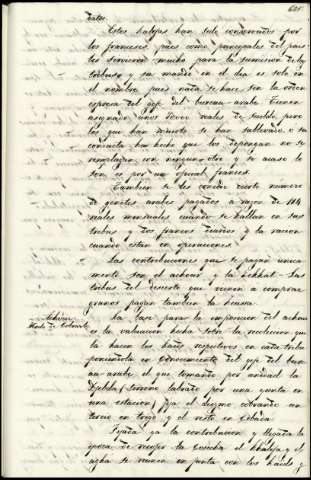 605.
datos.
Estos kalifas han sido conservados por
los franceses, pues como principales del pais
les sirvieron mucho para la sumision de las
tribus y su mando en el dia es solo en
el nombre pues nada se hace sin la orden
espresa del gefe del bureau arabe. Tienen
asignado unos doce reales de sueldo, pero
los que han muerto se han sublevado o su
conducta han hecho que los depongan no se
remplazan con ninguno otro y si acaso lo
son es por un oficial frances.
Tambien se les concede cierto numero
de ginetes arabes pagados a razon de 114
reales mensuales cuando se hallan en sus
tribus y dos francos diarios y la racion
cuando estan en operaciones.
Las contribuciones que se pagan unica-
mente son el achour y la zekkat. Las
tribus del desierto que vienen a comprar
granos pagan tambien la
Achour
Modo de cobrarlo
La base para la imposicion del achour
es la valuacion hecha sobre la recoleccion que
la hacen los kaids respectivos en cada tribu
poniendola en conocimiento del gefe del bur-
eau arabe el que tomando por unidad la
Djebda (terreno labrado por una yunta en
una estacion) fija el diezmo cobrando un
tercio en trigo y el resto en cebada
Fijada ya la contribucion y llegada la
epoca de recojer la cosecha el khalifa y el
agha se reunen en junta con los kaids y